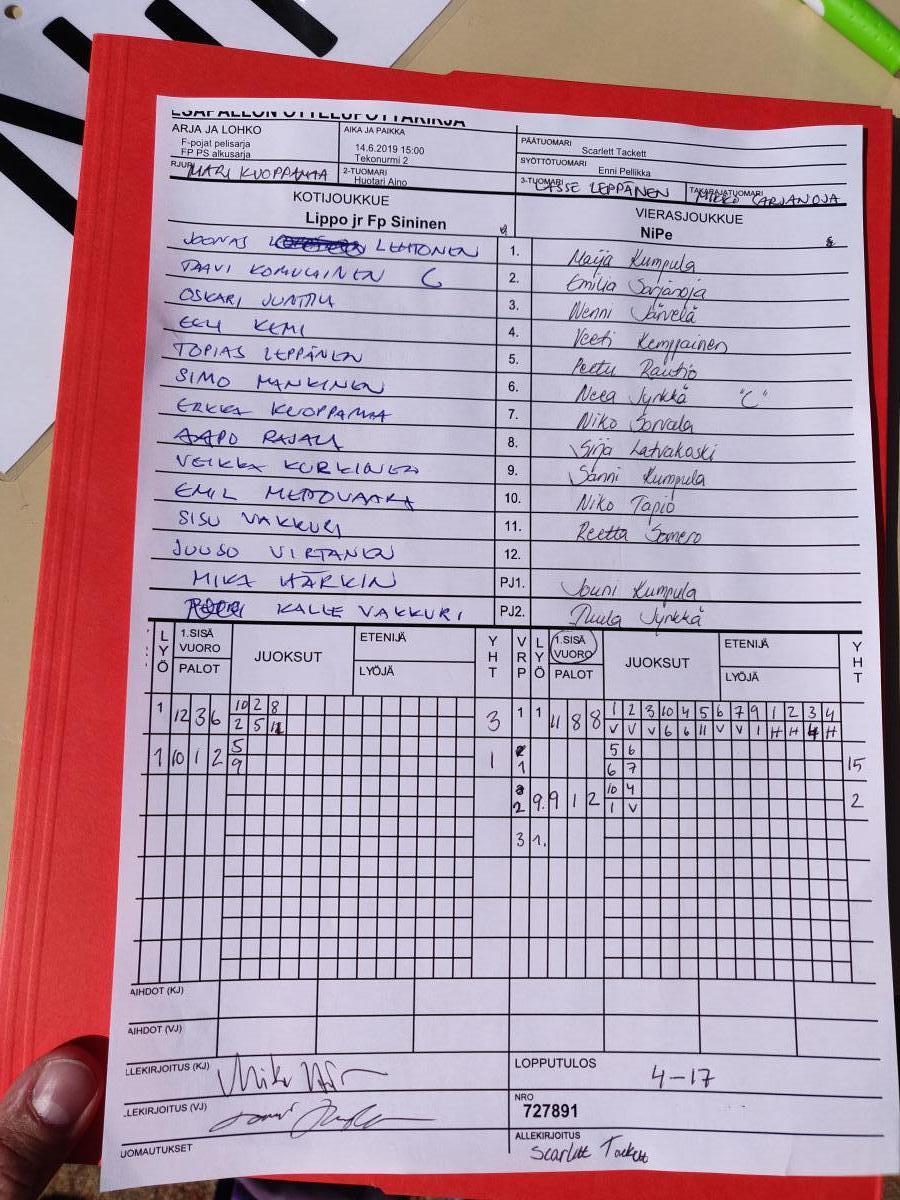 ESÄPALLON OTTELUPÖYTÄKIRJA
ARJA JA LOHKO
F-pojat pelisarja
FP PS alkusarja
AIKA JA PAIKKA
14.6.2019 15:00
Tekonurmi 2
PÄÄTUOMARI
Scarlett Tackett
SYÖTTÖTUOMARI
Enni Pellikka
RJURI
MARI KUOPPAMAA
2-TUOMARI
Huotari Aino
3-TUOMARI
LASSE LEPPÄNEN
TAKARAJATUOMARI
MIKKO SARJANOJA
KOTIJOUKKUE
Lippo jr Fp Sininen
VIERASJOUKKUE
NiPe
JOONAS LEHTONEN 1. Maija Kumpula
TAAVI KOMULAINEN C 2. Emilia Sarjanoja
OSKARI JUNTTILA 3. Nenni Järvelä
EELI KEMI 4. Veeti Kemppainen
TOPIAS LEPPÄNEN 5. Peetu Rautio
SIMO MANKINEN 6. Neea Jyrkkä "C"
ERKKA KUOPPAMAA 7. Niko Sorvala
AAPO RAJALA 8. Sija Latvakoski
VEIKKA KURKINEN 9. Sanni Kumpula
EMIL METSOVAARA 10. Niko Tapio
SISU VAKKURI 11. Reetta Somero
JUUSO VIRTANEN 12.
MIKA HÄRKIN PJ1. Jouni Kumpula
KALLE VAKKURI PJ2. Tuula Jyrkkä
LYÖ 1.SISÄ VUORO PALOT JUOKSUT ETENIJÄ LYÖJÄ YHT VRP LYÖ 1.SISÄ VUORO PALOT JUOKSUT ETENIJÄ LYÖJÄ YHT
1 12 3 6 10 2 8 3 1 1 11 8 8 1 2 3 10 4 5 6 7 9 1 2 3 4
2 5 11 V V V 6 6 11 V V 1 H H H H
1 10 1 2 5 1 1 5 6 15
9 6 7
2 9. 9 1 2 10 4 2
1 V
3 1.
AIHDOT (KJ)
AIHDOT (VJ)
LLEKIRJOITUS (KJ)
LOPPUTULOS 4-17
LLEKIRJOITUS (VJ)
NRO
727891
UOMAUTUKSET
ALLEKIRJOITUS
Scarlett Tackett